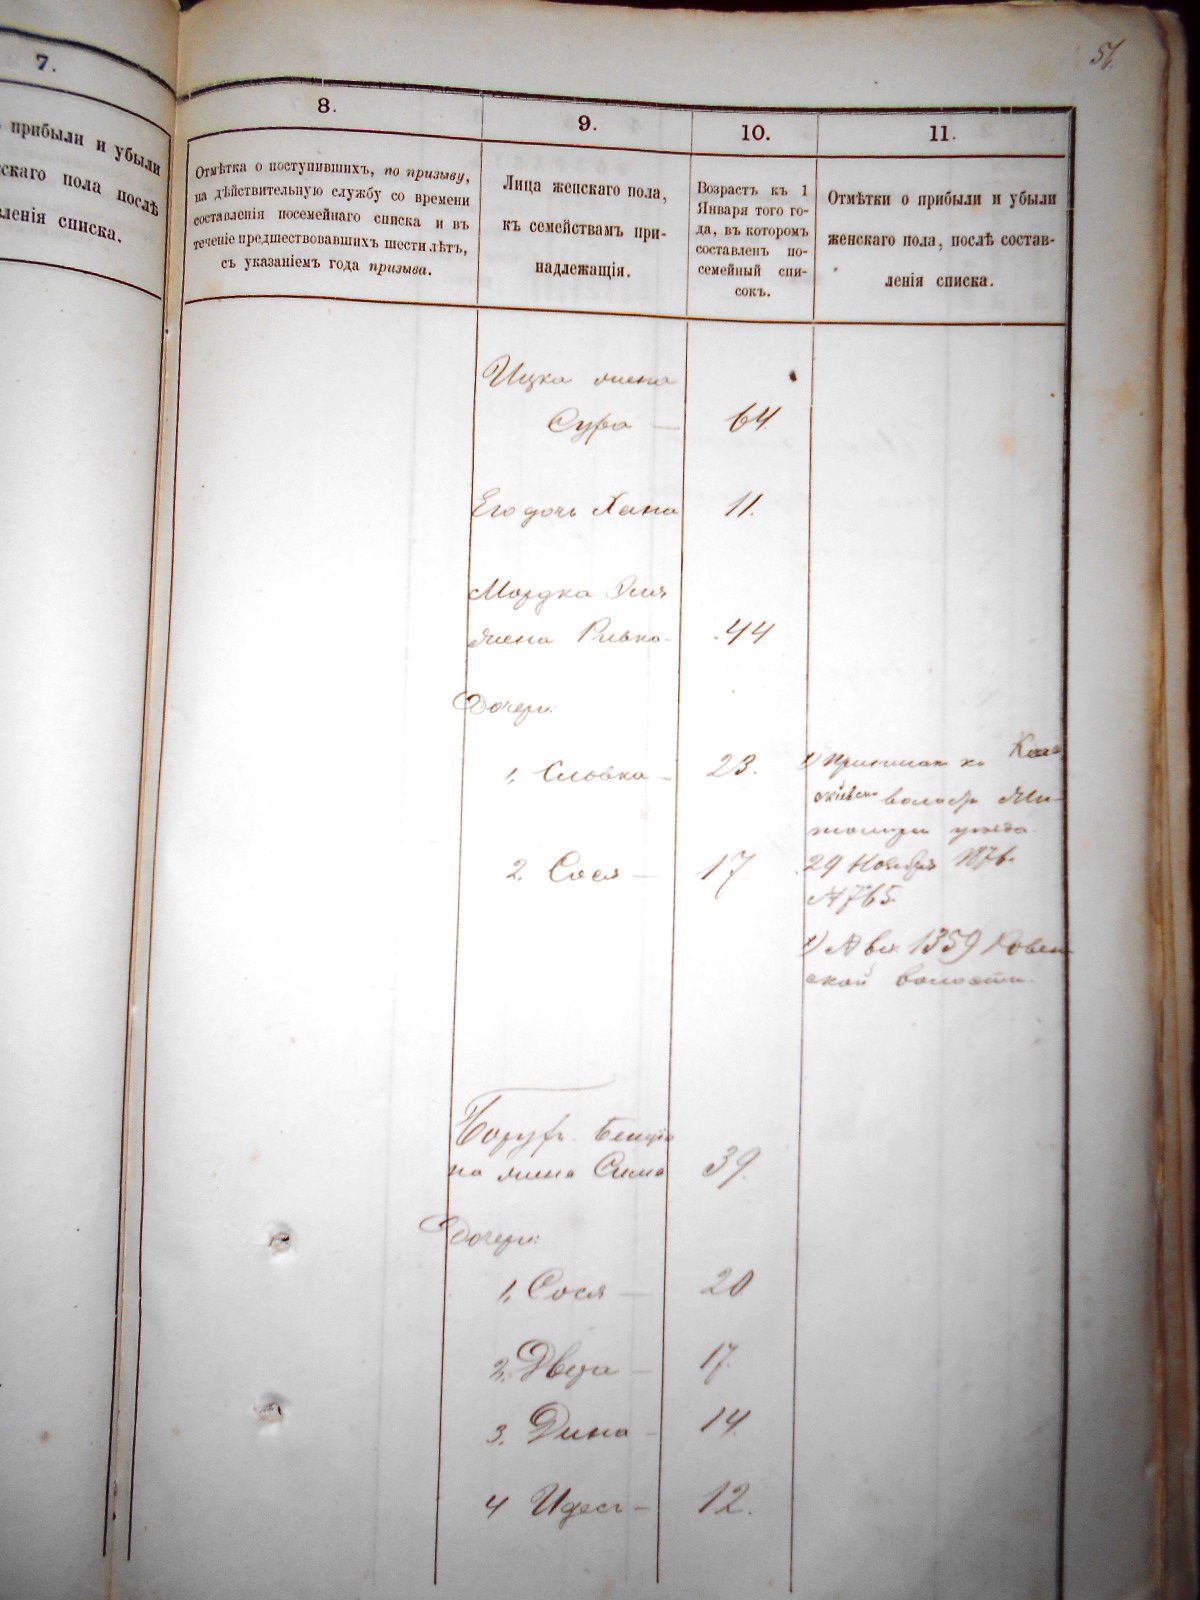 51.
7.
прибыли и убыли
скаго пола послѣ
вленія списка.
8.
Отмѣтка о поступившихъ, по призыву,
на дѣйствительную службу со времени
составленія посемейнаго списка и въ
теченіе предшествовавшихъ шести лѣтъ,
съ указаніемъ года призыва.
9.
Лица женскаго пола,
къ семействамъ при-
надлежащія.
10.
Возрастъ къ 1
Января того го-
да, въ которомъ
составленъ по-
семейный спи-
сокъ.
11.
Отмѣтки о прибыли и убыли
женскаго пола, послѣ состав-
ленія списка.
Ицка жена
Сура — 64.
Его дочь Хана 11.
Мордка
жена Ривка 44
Дочери:
1, Словка — 23.
2. Сося — 17
1)
волость Жи-
томир уѣзда.
29 Ноября 1876.
№ 765
2) № вх. 1359 Ровен-
ской волости.
Борухъ Бенціо
на жена Сима 39.
Дочери:
1, Сося — 20
2, Двера — 17.
3, Дина — 14.
4 Идесъ — 12.